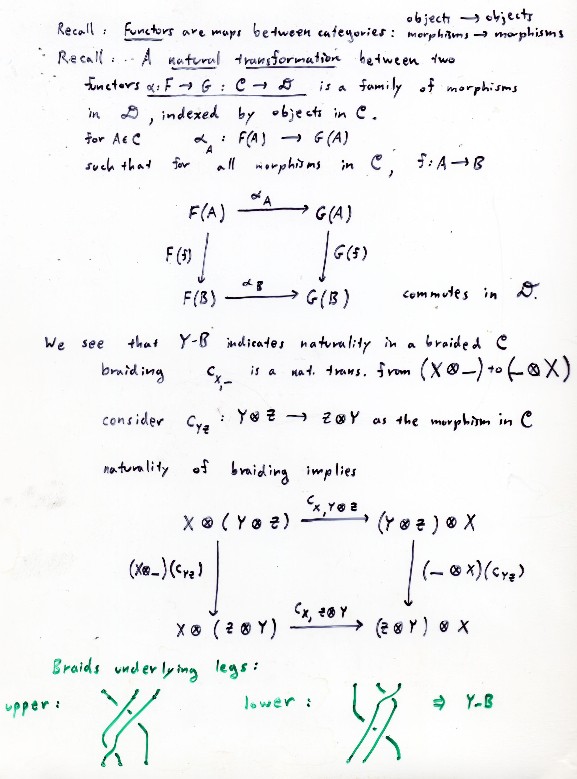 objects → objects
Recall : Functors are maps between categories : morphisms → morphisms
Recall : . . A natural transformation between two
functors α : F → G : C → D is a family of morphisms
in D , indexed by objects in C .
for A ∈ C α_A : F(A) → G(A)
such that for all morphisms in C , f : A → B
F(A) α_A G(A)
F(f) G(f)
F(B) α_B G(B) commutes in D .
We see that Y-B indicates naturality in a braided C
braiding C_X,_ is a nat. trans. from (X ⊗ _) to (_ ⊗ X)
consider C_YZ : Y ⊗ Z → Z ⊗ Y as the morphism in C
naturality of braiding implies
X ⊗ ( Y ⊗ Z ) C_X, Y ⊗ Z (Y ⊗ Z ) ⊗ X
(X ⊗ _)(C_YZ) (_ ⊗ X)(C_YZ)
X ⊗ ( Z ⊗ Y ) C_X, Z ⊗ Y (Z ⊗ Y ) ⊗ X
Braids underlying legs :
upper : lower : ⇒ Y-B